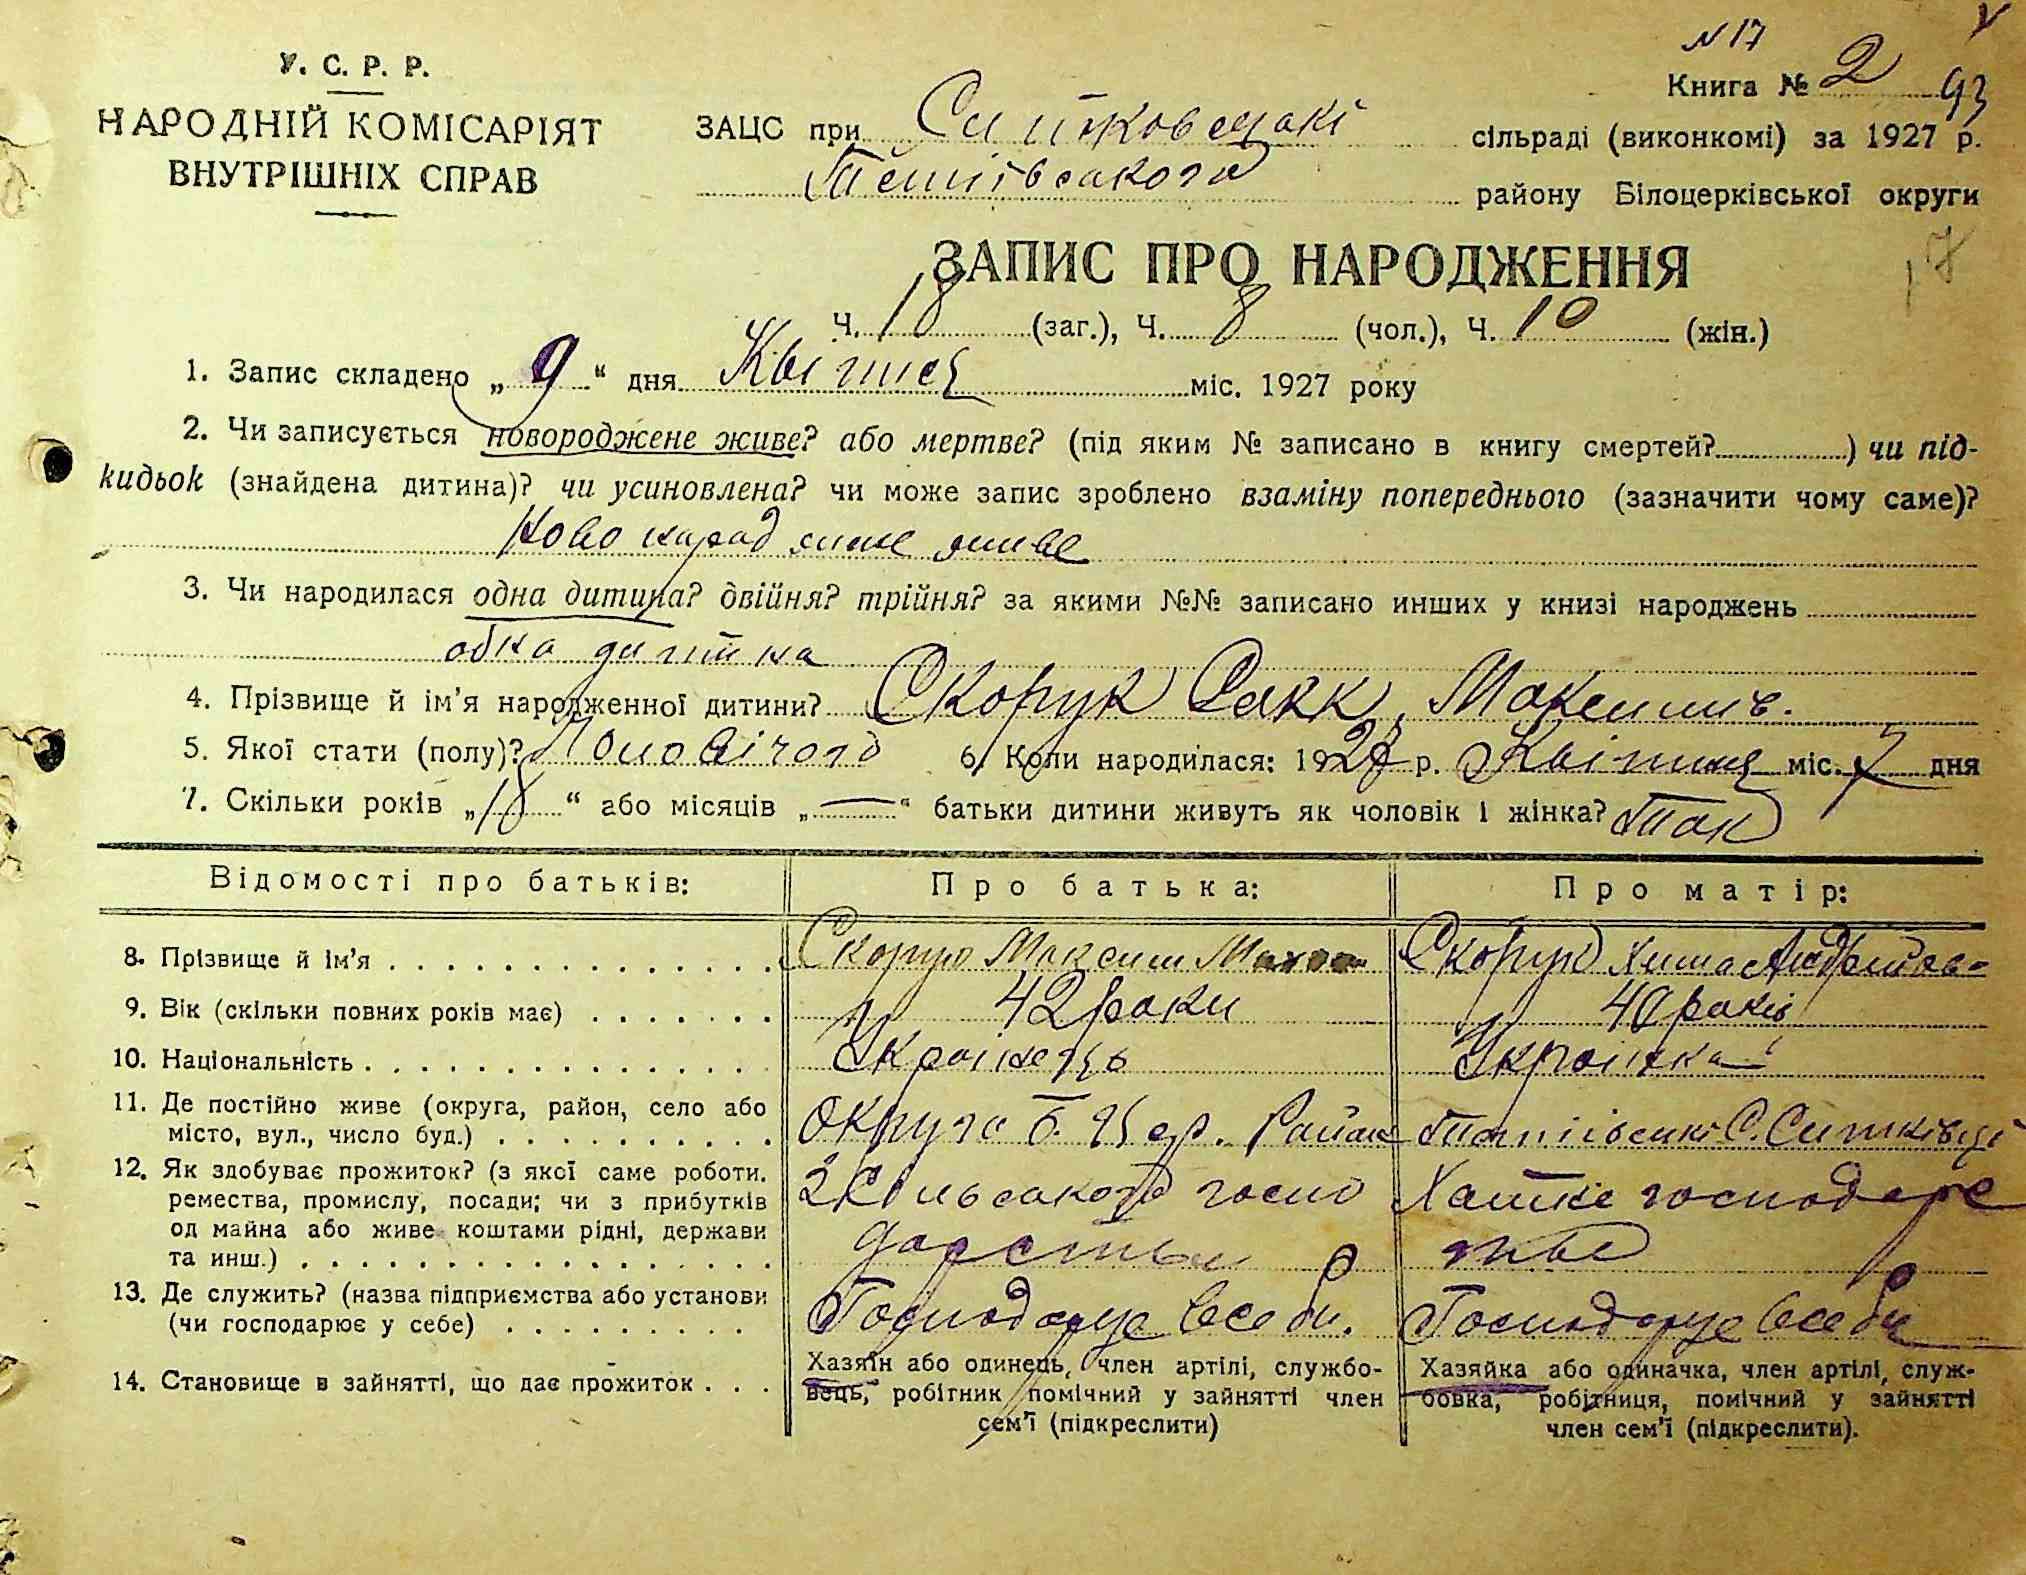 У. С. Р. Р.
НАРОДНІЙ КОМІСАРІЯТ
ВНУТРІШНІХ СПРАВ
N 17
Книга № 2 93
ЗАЦС при сільраді (виконкомі) за 1927 р.
району Білоцерківської округи
ЗАПИС ПРО НАРОДЖЕННЯ
17
Ч. 18 (заг.), Ч. 8 (чол.), Ч. 10 (жін.)
1. Запис складено „ 9 “ дня Квітня міс. 1927 року
2. Чи записується новороджене живе? або мертве? (під яким № записано в книгу смертей? ) чи під-
кидьок (знайдена дитина)? чи усиновлена? чи може запис зроблено взаміну попереднього (зазначити чому саме)?
живе
3. Чи народилася одна дитина? двійня? трійня? за якими №№ записано инших у книзі народжень
одна
4. Прізвище й ім'я народженної дитини? Скорук
5. Якої стати (полу)? 6. Коли народилася: 1927 р. Квітня міс. 7 дня
7. Скільки років „ 18 “ або місяців „ — “ батьки дитини живуть як чоловік і жінка? Так
Відомості про батьків: Про батька: Про матір:
8. Прізвище й ім'я Скорук Максим Скорук
9. Вік (скільки повних років має) 42 роки 40 років
10. Національність Українець Українка
11. Де постійно живе (округа, район, село або
місто, вул., число буд.) Округа Б. Цер. Район С. Ситківці
12. Як здобуває прожиток? (з якої саме роботи,
ремества, промислу, посади; чи з прибутків
од майна або живе коштами рідні, держави
та инш.)
з Сільського госпо
дарства
Хатнє господарс
тво
13. Де служить? (назва підприємства або установи
(чи господарює у себе) Господарує в себе. Господарує в себе
14. Становище в зайнятті, що дає прожиток
Хазяїн або одинець, член артілі, службо-
вець, робітник помічний у зайнятті член
сем'ї (підкреслити)
Хазяйка або одиначка, член артілі, служ-
бовка, робітниця, помічний у зайнятті
член сем'ї (підкреслити).